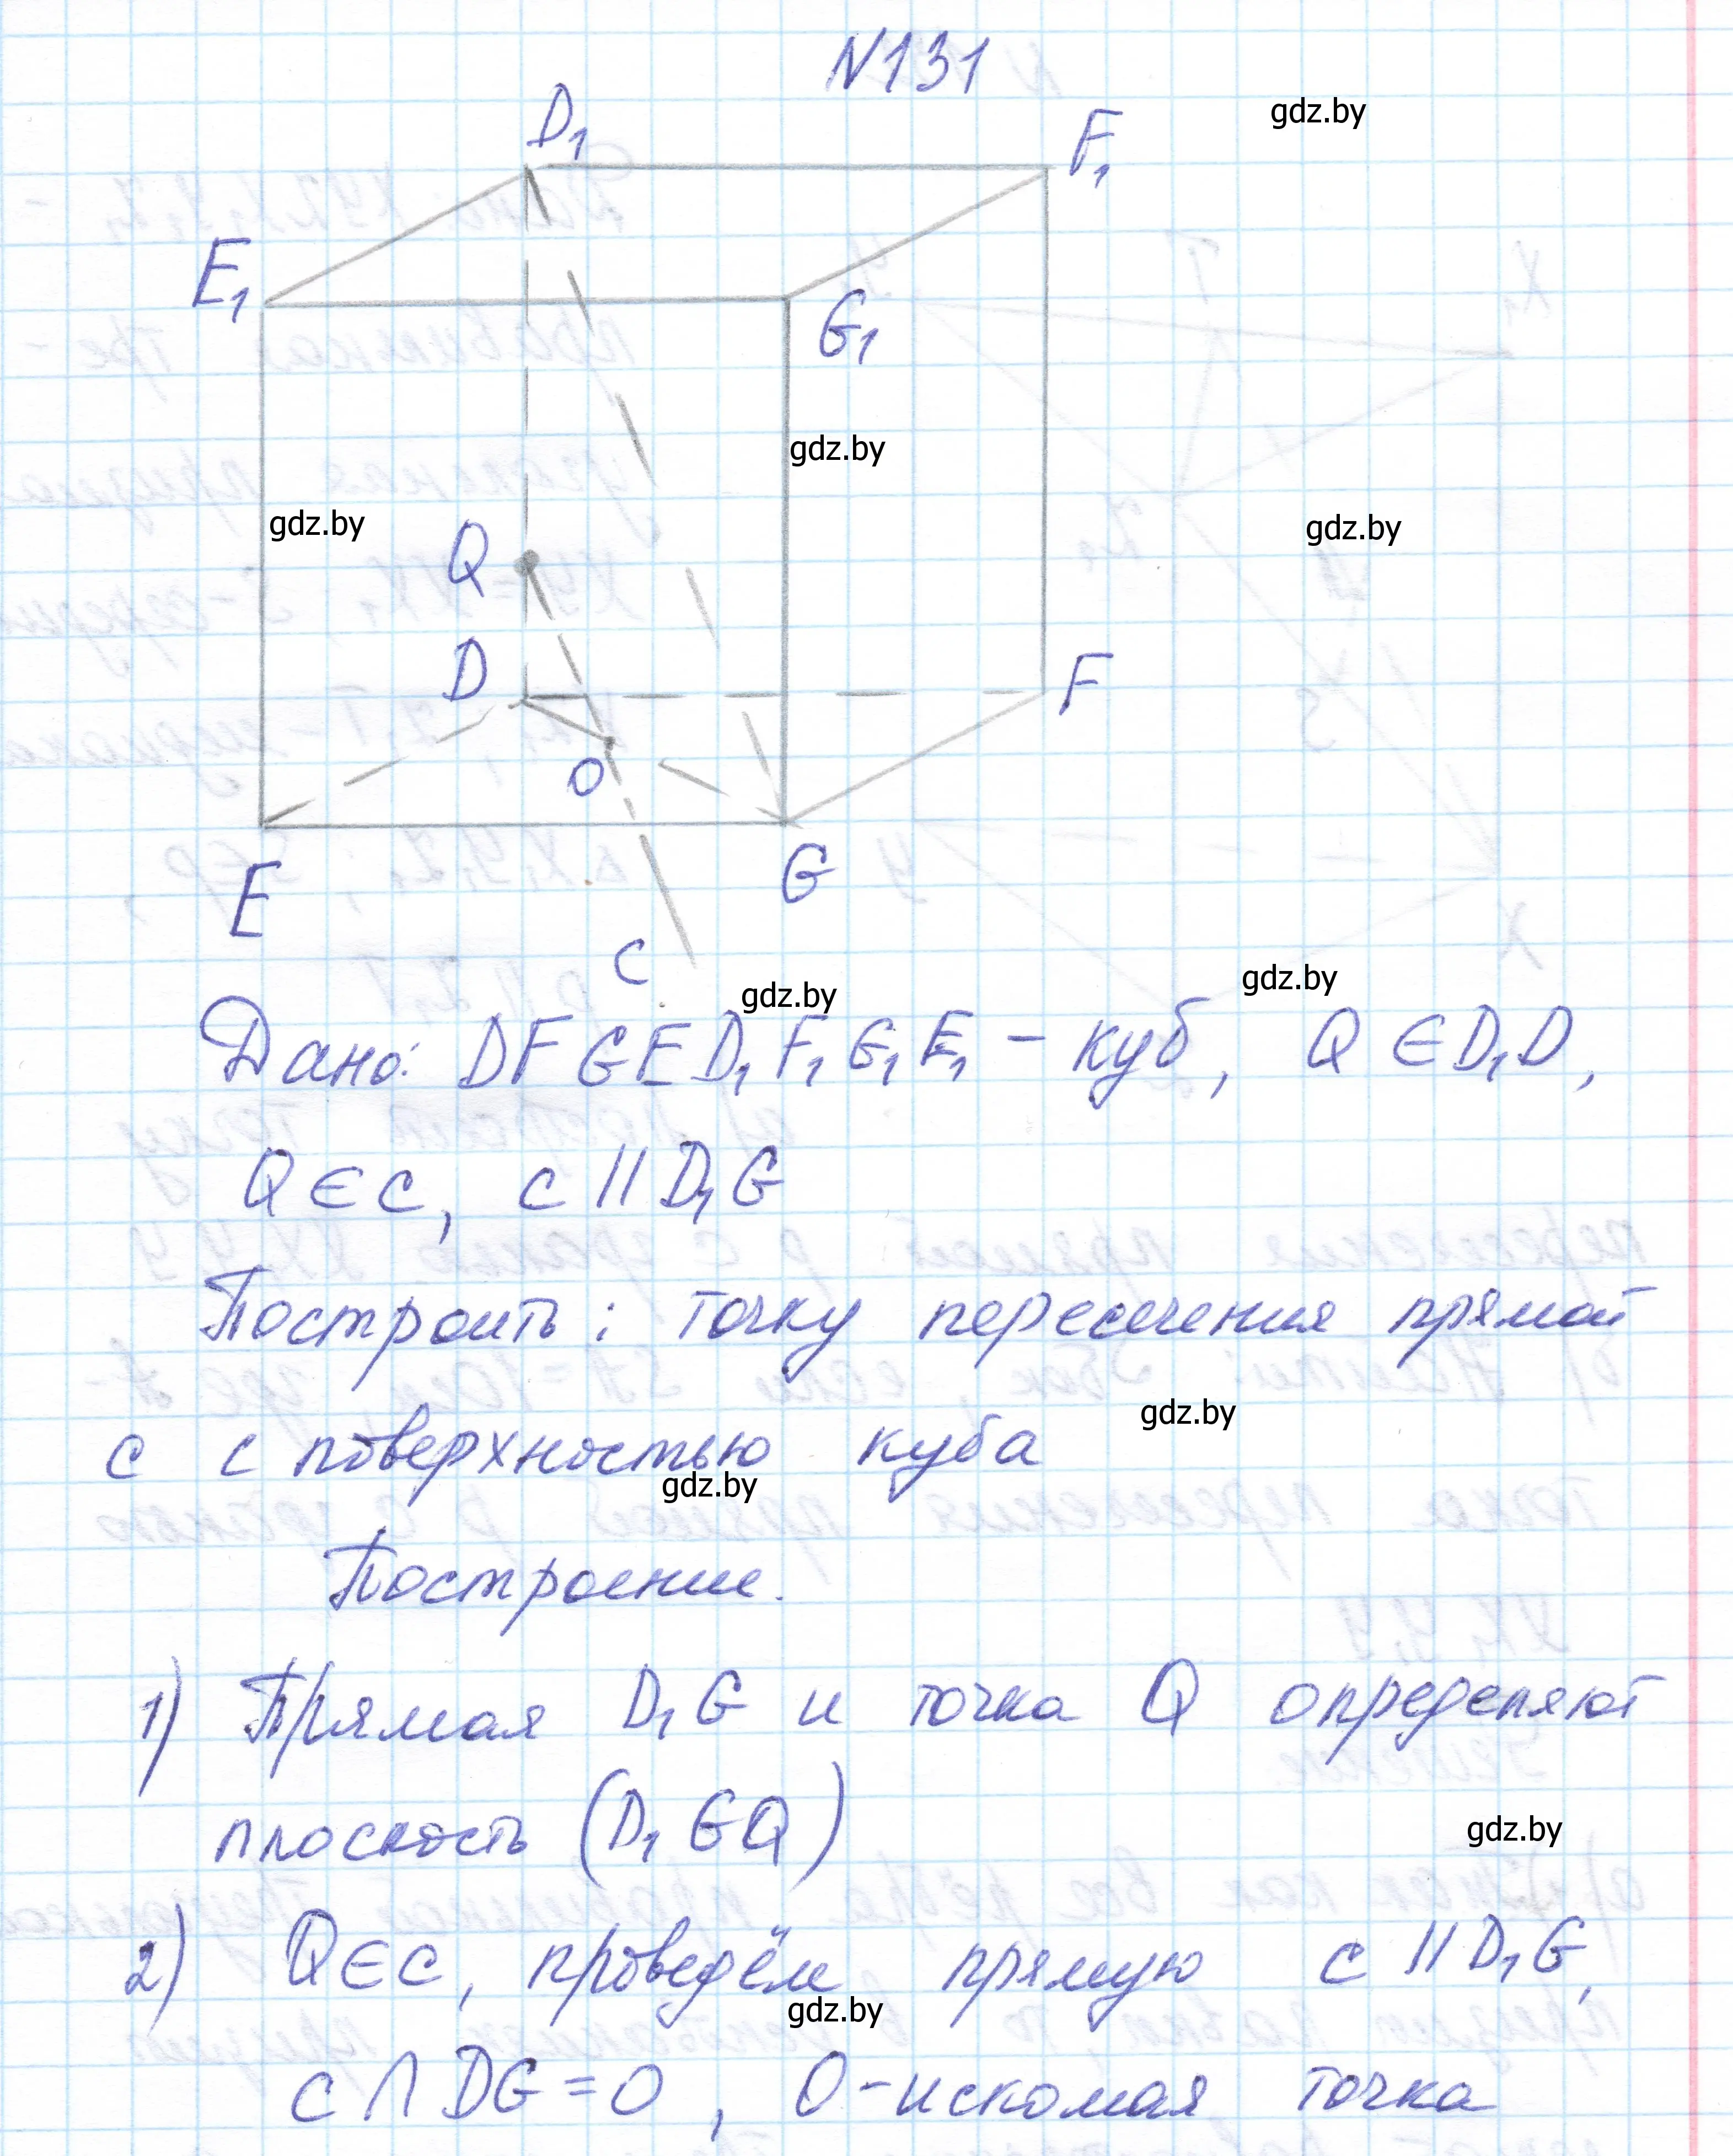 N131
D₁
F₁
gdz.by
E₁
G₁
gdz.by
gdz.by
Q
gdz.by
D
F
O
E
G
c
gdz.by
gdz.by
Дано: DFGED₁F₁G₁E₁ – куб, Q ∈ D₁D,
Q ∈ c, c || D₁G
Построить: точку пересечения прямой
c с поверхностью куба
gdz.by
gdz.by
Построение.
1) Прямая D₁G и точка Q определяют
плоскость (D₁GQ)
gdz.by
2) Q ∈ c, проведём прямую c || D₁G,
gdz.by
c ∩ DG = O, O – искомая точка